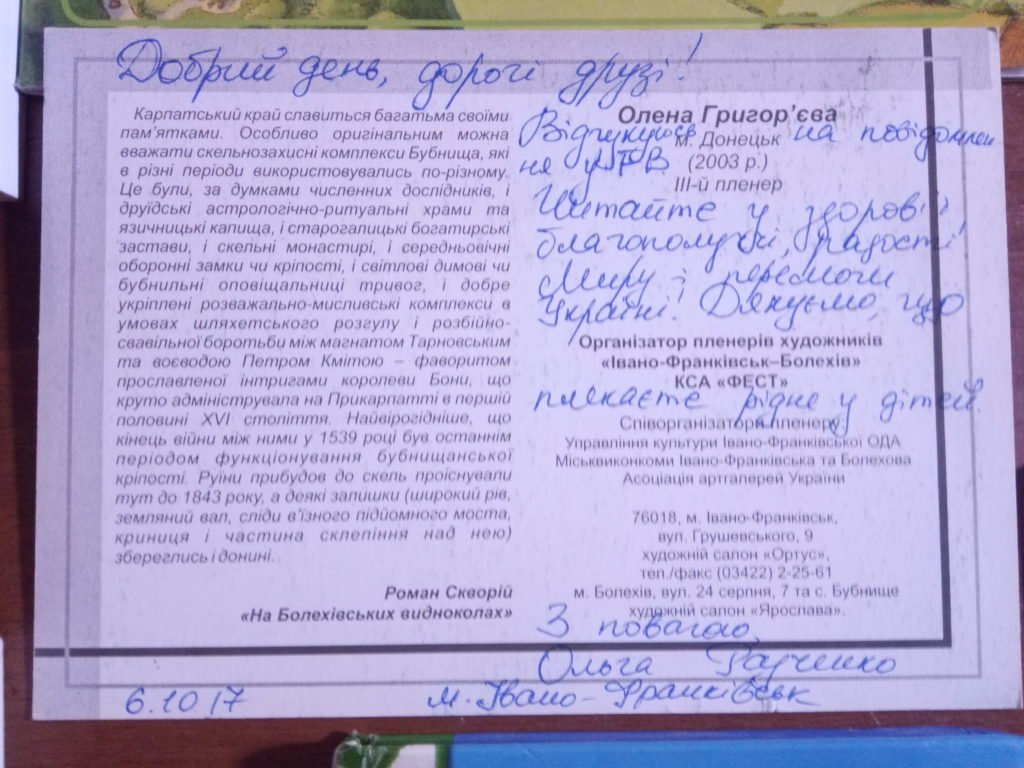 Добрий день, дорогі друзі!
Карпатський край славиться багатьма своїми
пам'ятками. Особливо оригінальним можна
вважати скельнозахисні комплекси Бубнища, які
в різні періоди використовувались по-різному.
Це були, за думками численних дослідників, і
друїдські астрологічно-ритуальні храми та
язичницькі капища, і старогалицькі богатирські
застави, і скельні монастирі, і середньовічні
оборонні замки чи кріпості, і світлові димові чи
бубнильні оповіщальниці тривог, і добре
укріплені розважально-мисливські комплекси в
умовах шляхетського розгулу і розбійно-
свавільної боротьби між магнатом Тарновським
та воєводою Петром Кмітою – фаворитом
прославленої інтригами королеви Бони, що
круто адмініструвала на Прикарпатті в першій
половині XVI століття. Найвірогідніше, що
кінець війни між ними у 1539 році був останнім
періодом функціонування бубнищанської
кріпості. Руїни прибудов до скель проіснували
тут до 1843 року, а деякі залишки (широкий рів,
земляний вал, сліди в'їзного підйомного моста,
криниця і частина склепіння над нею)
збереглись і донині.
Роман Скворій
«На Болехівських видноколах»
Олена Григор'єва
Відгукуюсь на повідомлен
м. Донецьк
ня у
(2003 р.)
III-й пленер
Читайте у здоров'ї
благополуччі, радості
Миру і перемоги
Україні! Дякуємо, що
Організатор пленерів художників
«Івано-Франківськ–Болехів»
КСА «ФЕСТ»
плекаєте рідне у дітей.
Співорганізатори пленеру:
Управління культури Івано-Франківської ОДА
Міськвиконкоми Івано-Франківська та Болехова
Асоціація артгалерей України
76018, м. Івано-Франківськ,
вул. Грушевського, 9
художній салон «Ортус»,
тел./факс (03422) 2-25-61
м. Болехів, вул. 24 серпня, 7 та с. Бубнище
художній салон «Ярослава».
З повагою,
Ольга Радченко
6.10 17 м. Івано-Франківськ